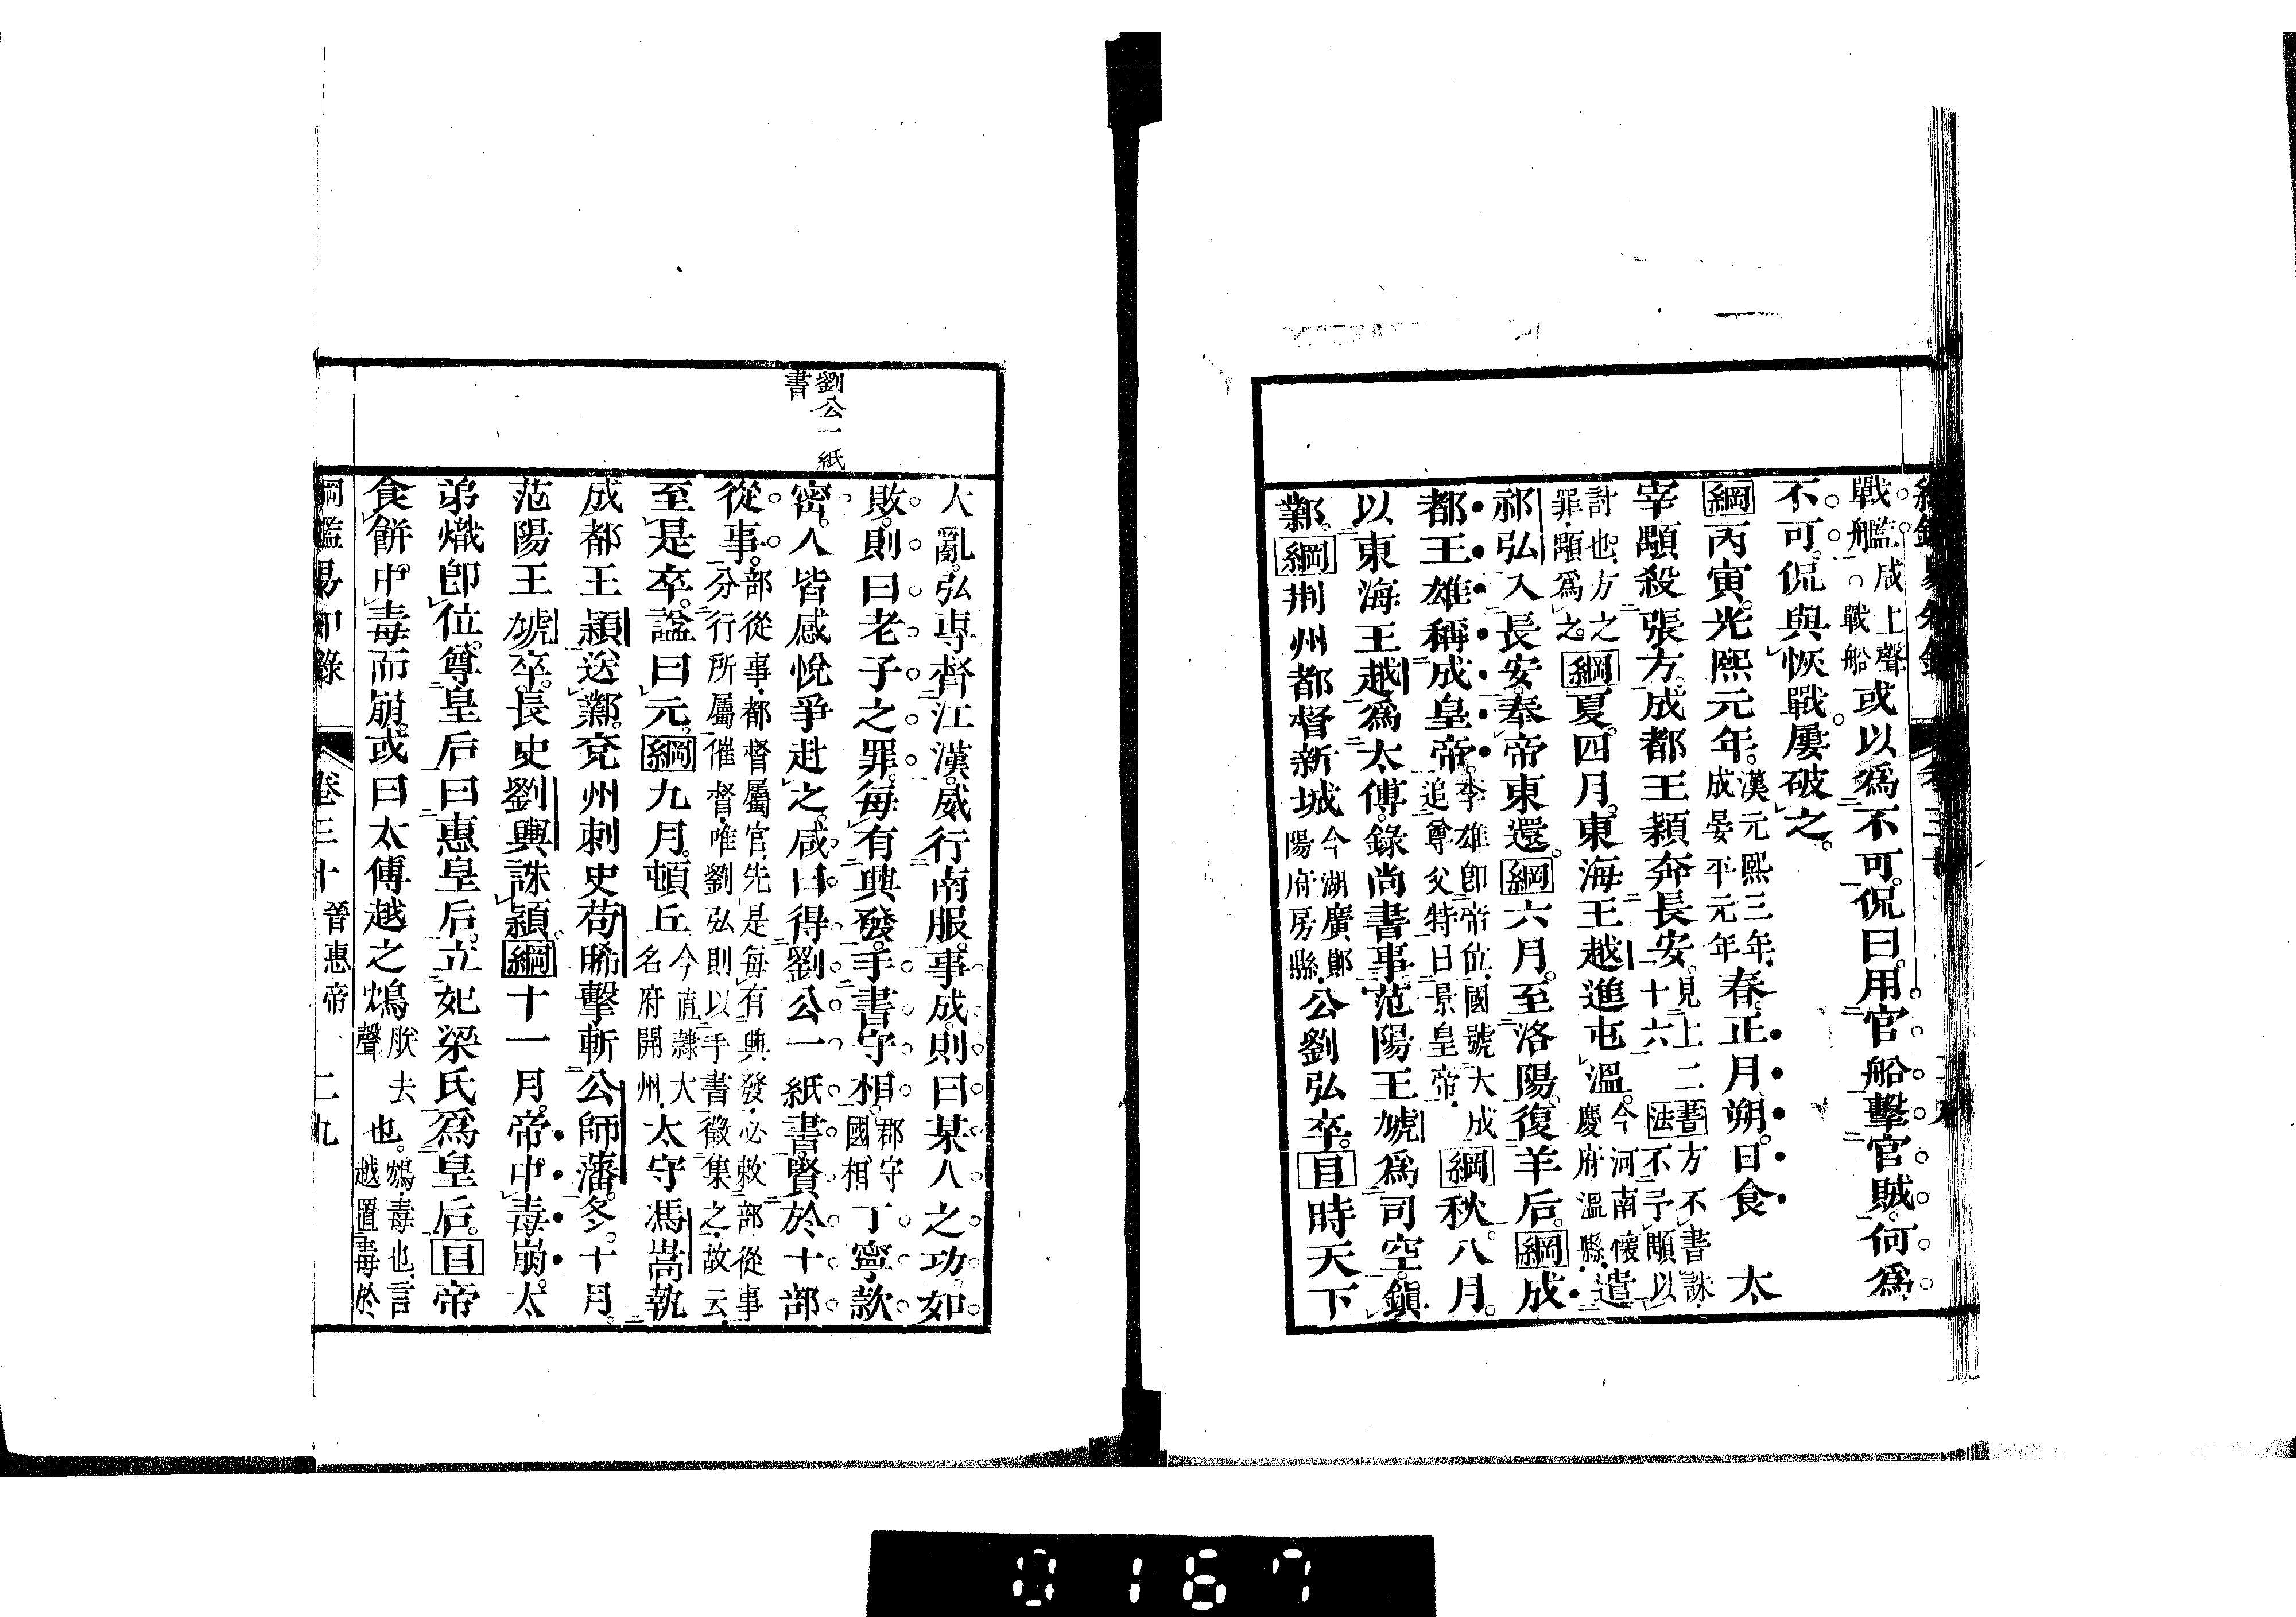 戰艦咸上聲
戰船戰船或以爲不可侃曰用官船擊官賊何爲
不可侃與恢戰屢破之
綱丙寅光熙元年漢元熙三年成晏平元年春正月朔日食太
宰顒殺張方成都王穎奔長安見上二十六書法方不書誅不予顒以
討也方之罪顒爲之綱夏四月東海王越進屯溫今河南懷慶府溫縣遣
祁弘入長安奉帝東還綱六月至洛陽復羊后綱成
都王雄稱成皇帝李雄卽帝位國號大成追尊父特曰景皇帝綱秋八月
以東海王越爲太傅錄尚書事范陽王虓爲司空鎭
鄴綱荆州都督新城今湖廣鄖陽府房縣公劉弘卒目時天下
劉公一紙書
大亂弘專督江漢威行南服事成則曰某人之功如
敗則曰老子之罪每有興發手書守相郡守國相丁寧款
密人皆感悅爭赴之咸曰得劉公一紙書賢於十部
從事部從事都督屬官先是每有興發必敕部從事分行所屬催督唯劉弘則以手書徵集之故云
至是卒謚曰元綱九月頓丘今直隸大名府開州太守馮嵩執
成都王穎送鄴兗州刺史苟晞擊斬公師藩冬十月
范陽王虓卒長史劉輿誅穎綱十一月帝中毒崩太
弟熾卽位尊皇后曰惠皇后立妃梁氏爲皇后目帝
食餅中毒而崩或曰太傅越之鴆朕去聲也鴆毒也言越置毒於
綱鑑易知錄 卷三十 晉惠帝 二九